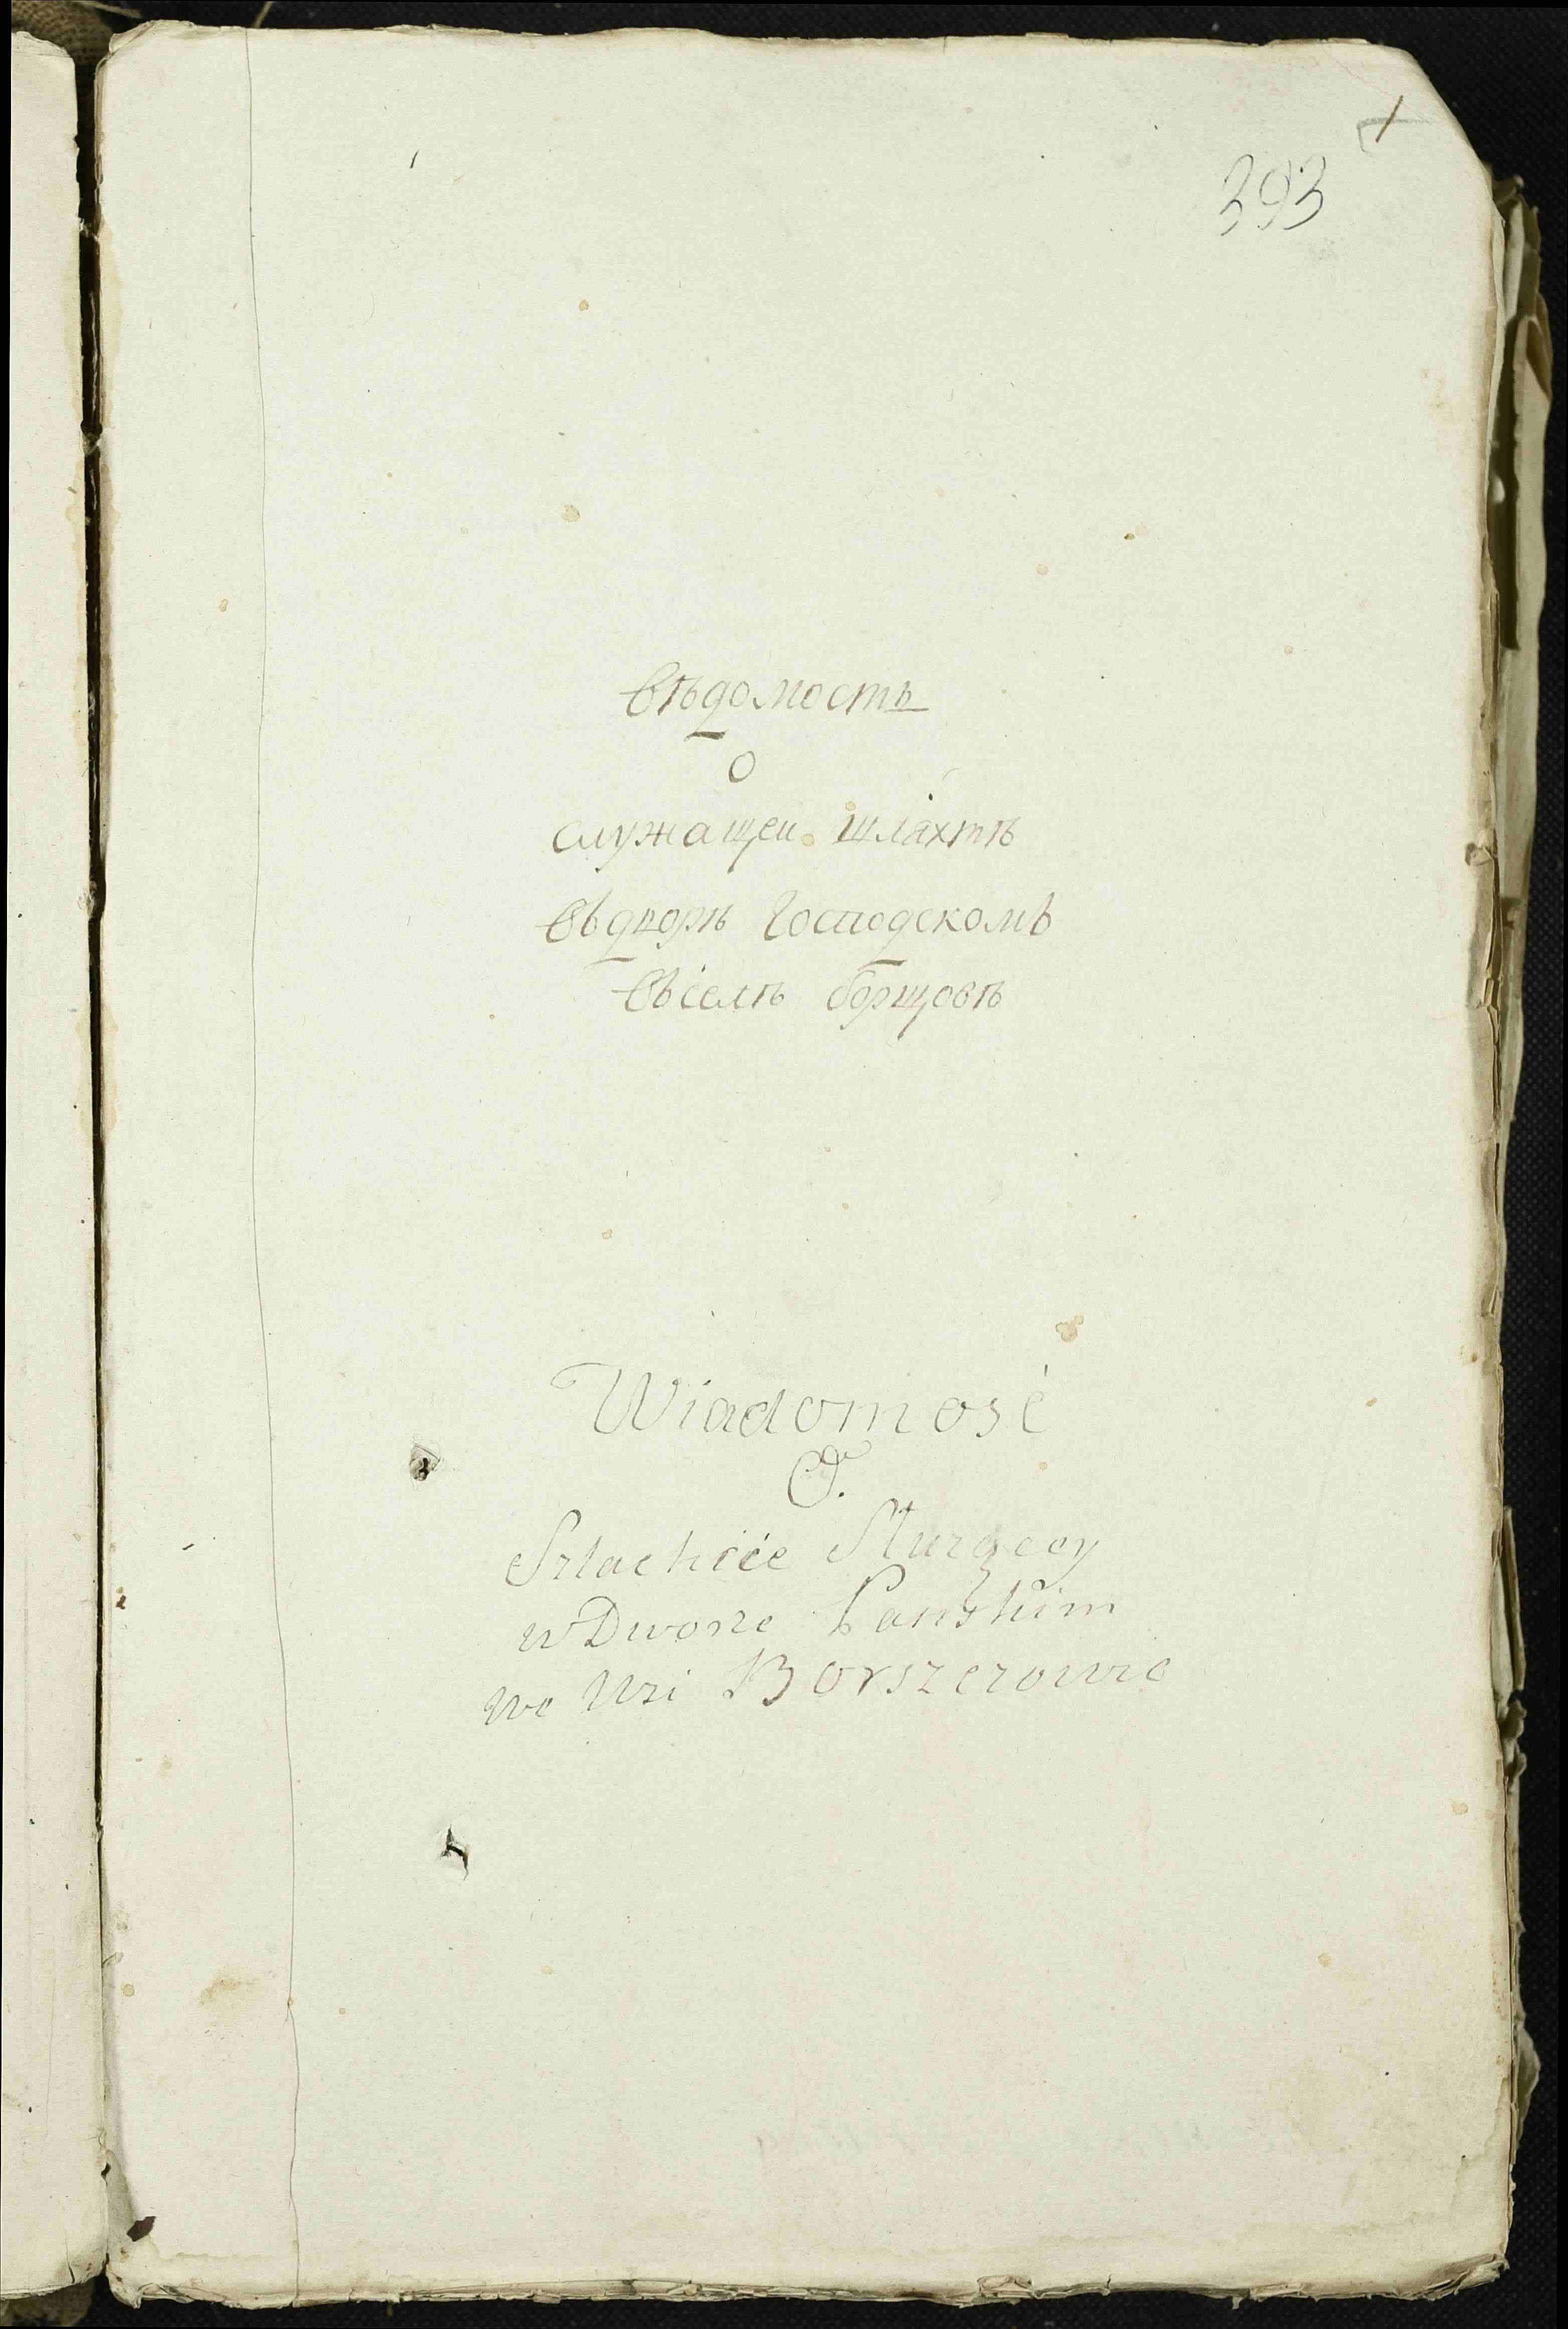 393
вѣдомость
о
служащеи шляхтѣ
въдворѣ Господскомъ
въселѣ борщовѣ
Wiadomość
O.
Szlachcie Służącey
w Dworze Pańskim
we Wsi Borszczowie